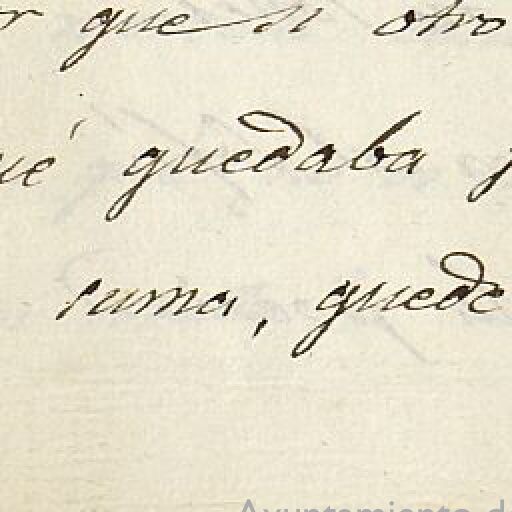 r que si otro
ué quedaba p
suma, quede
Ayuntamiento de